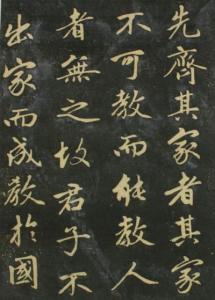 先齊其家者其家
不可教而能教人
者無之故君子不
出家而成教於國